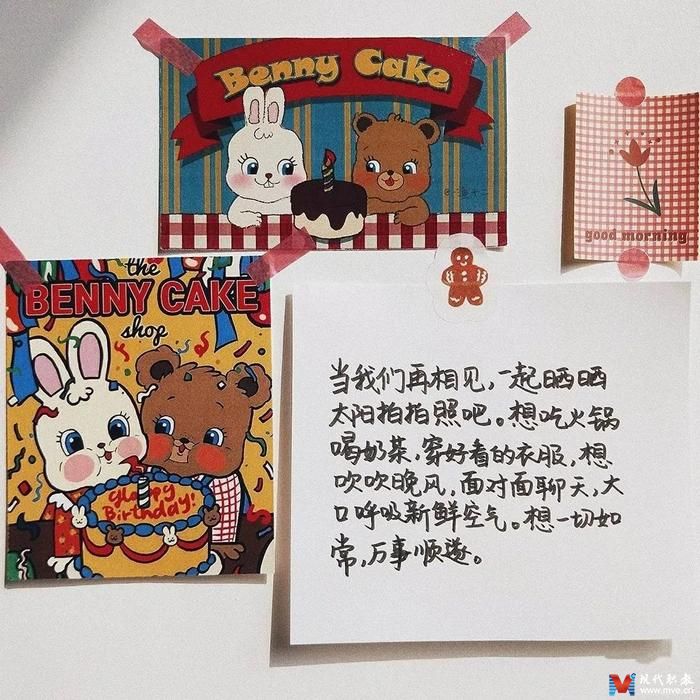 Benny Cake
@三鱼十一
good morning
the
BENNY CAKE
shop
Happy
Birthday!
当我们再相见，一起晒晒
太阳拍拍照吧。想吃火锅
喝奶茶，穿好看的衣服，想
吹吹晚风，面对面聊天，大
口呼吸新鲜空气。想一切如
常，万事顺遂。
现代职教
www.mve.cn